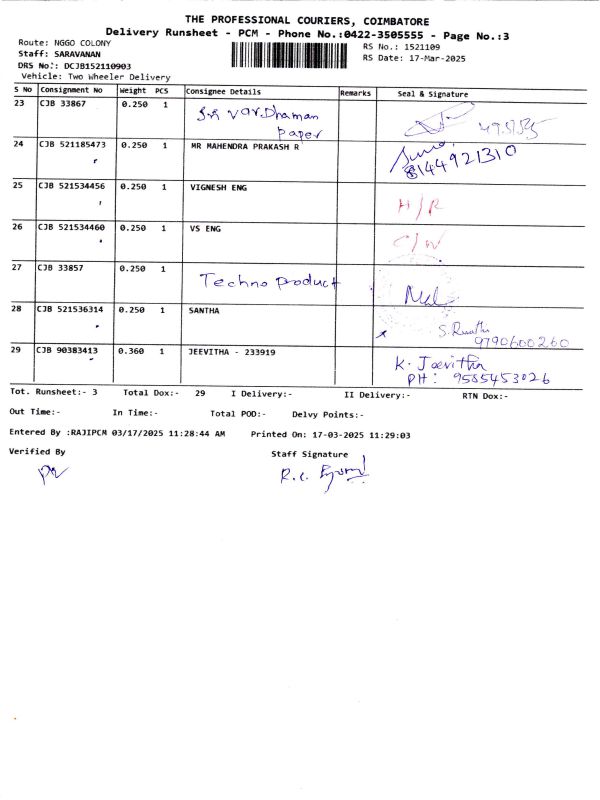 THE PROFESSIONAL COURIERS, COIMBATORE
Delivery Runsheet - PCM - Phone No.:0422-3505555 - Page No.:3
Route: NGGO COLONY
RS No.: 1521109
Staff: SARAVANAN
RS Date: 17-Mar-2025
DRS No.: DCJB152110903
Vehicle: Two Wheeler Delivery
S No Consignment No Weight PCS Consignee Details Remarks Seal & Signature
23 CJB 33867 0.250 1 Sri Vardhaman
paper
24 CJB 521185473 0.250 1 MR MAHENDRA PRAKASH R
8144921310
25 CJB 521534456 0.250 1 VIGNESH ENG H/R
26 CJB 521534460 0.250 1 VS ENG C/W
27 CJB 33857 0.250 1 Techno product
28 CJB 521536314 0.250 1 SANTHA
9790600260
29 CJB 90383413 0.360 1 JEEVITHA - 233919 K. Jeevitha
PH: 9585453026
Tot. Runsheet:- 3 Total Dox:- 29 I Delivery:- II Delivery:- RTN Dox:-
Out Time:- In Time:- Total POD:- Delvy Points:-
Entered By :RAJIPCM 03/17/2025 11:28:44 AM Printed On: 17-03-2025 11:29:03
Verified By Staff Signature
R.C.